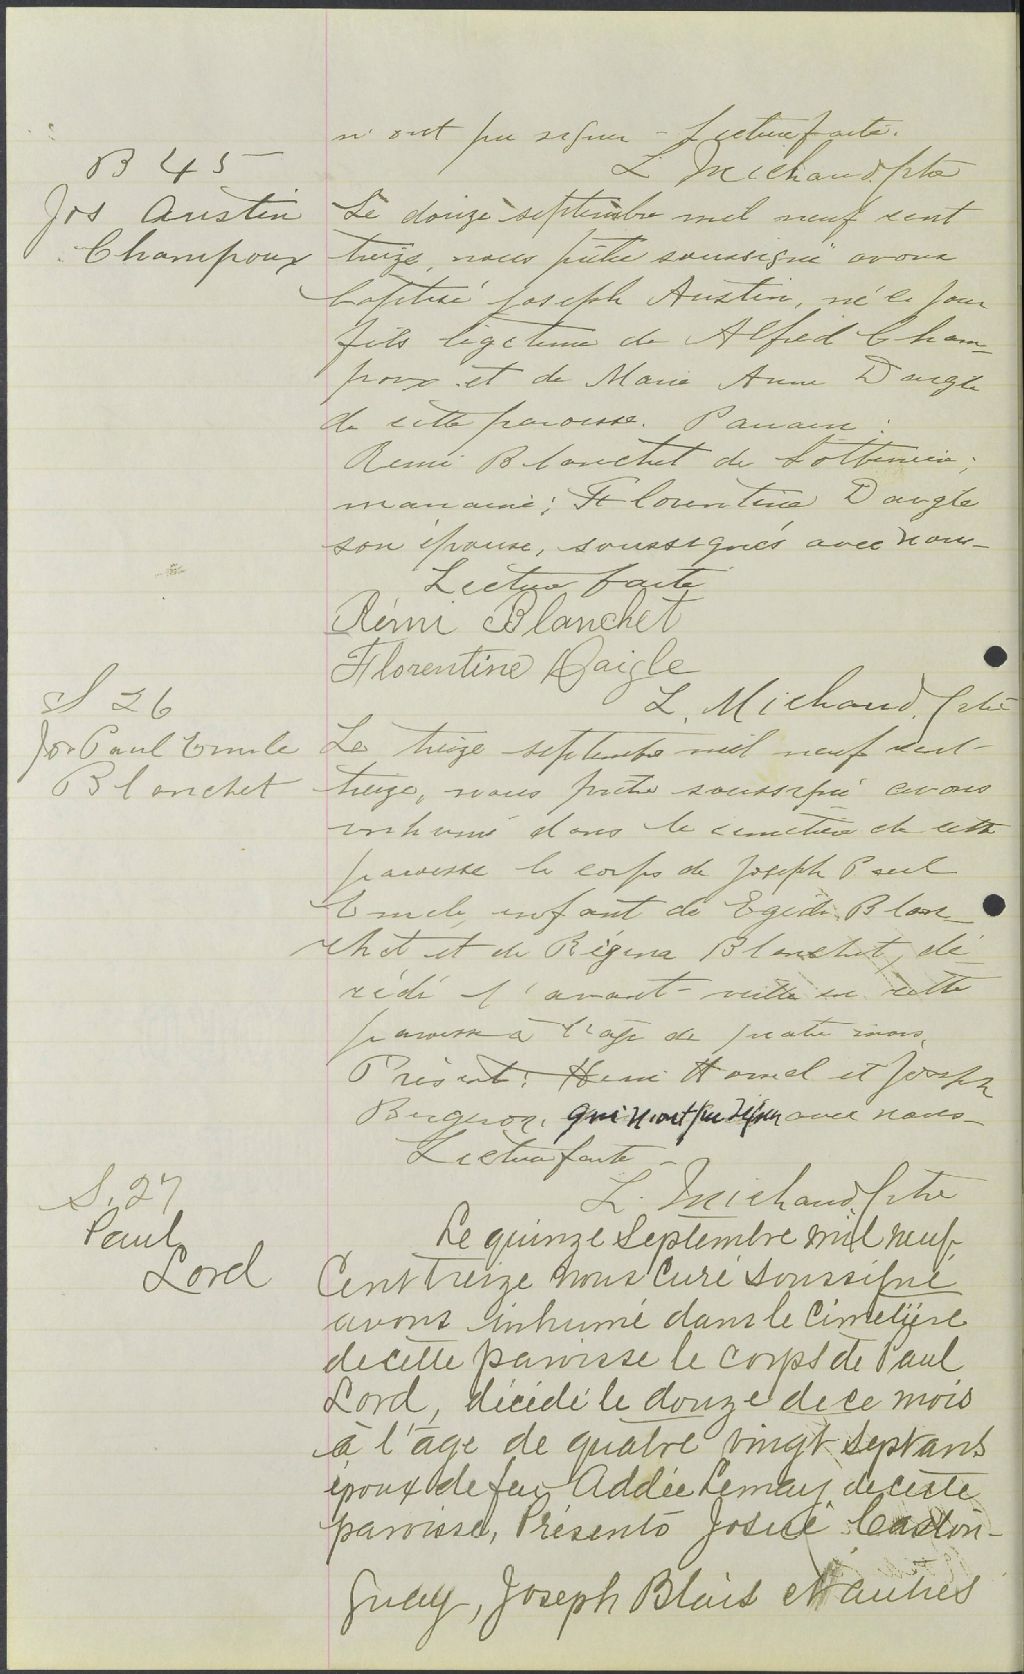 n'ont pu signer - Lecture faite.
L Michaud, ptre
B 45
Jos Austin
Champoux
Le douze septembre mil neuf cent
treize, nous prêtre soussigné avons
baptisé Joseph Austin, né ce jour
fils légitime de Alfred Cham-
poux et de Marie Anne Daigle
de cette paroisse. Parrain :
Remi Blanchet de Lotbinière;
marraine; Florentine Daigle
son épouse, soussignés avec nous-
Lecture faite
Rémi Blanchet
Florentine Daigle
L. Michaud, ptre
S 26
Jos Paul Emile
Blanchet
Le treize septembre mil neuf cent-
treize, nous prêtre soussigné avons
inhumé dans le cimetière de cette
paroisse le corps de Joseph Paul
Emile, enfant de Egide Blan-
chet et de Régina Blanchet, dé-
cédé l'avant-veille en cette
paroisse à l'âge de quatre mois.
Présents: Henri Hamel et Joseph
Bergeron, qui n'ont pu signer avec nous-
Lecture faite -
L. Michaud, ptre
S. 27
Paul
Lord
Le quinze Septembre mil neuf
Cent treize nous curé soussigné
avons inhumé dans le cimetière
de cette paroisse le corps de Paul
Lord, décédé le douze de ce mois
à l'âge de quatre vingt sept ans
époux de feu Addée Lemay de cette
paroisse, Présents Josué Caston-
guay, Joseph Blais et autres